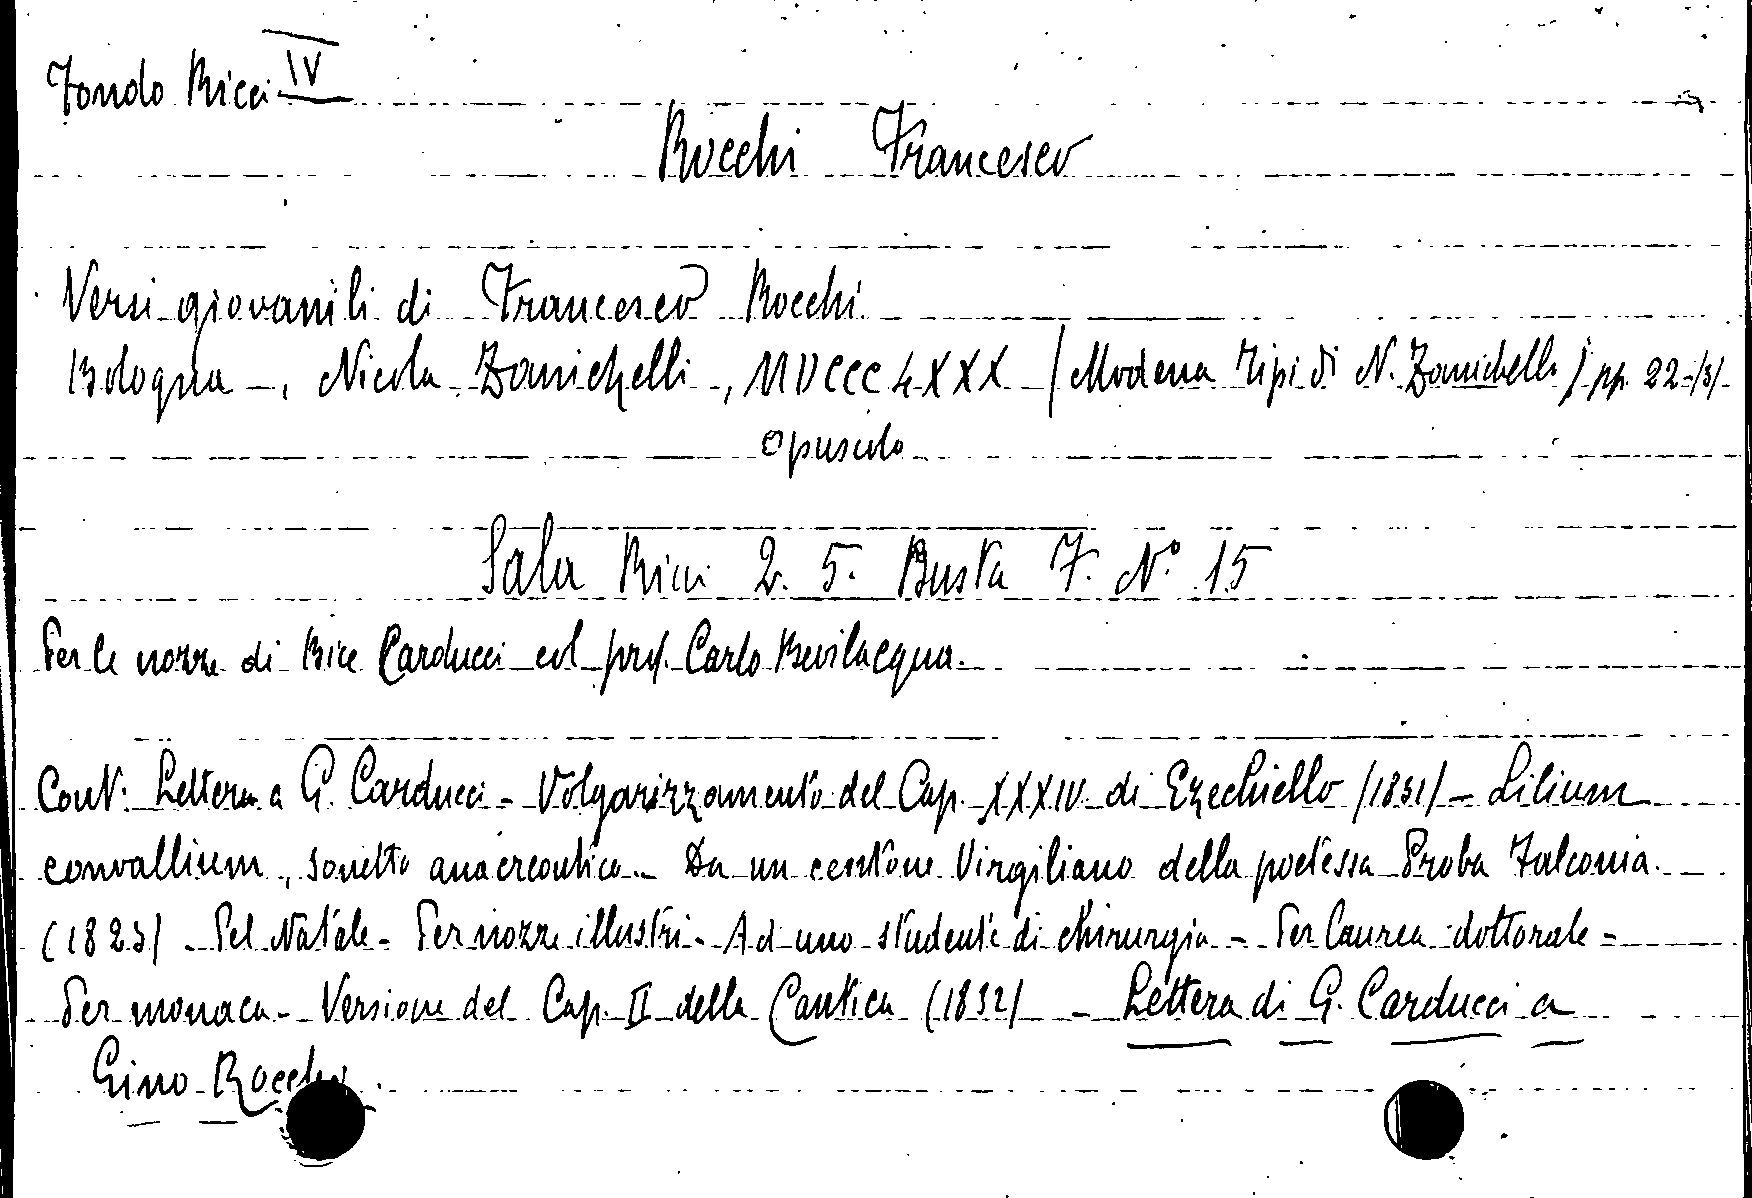 Fondo Ricci IV
Rocchi Francesco
Versi giovanili di Francesco Rocchi
Bologna -, Nicola Zanichelli -, MDCCCLXXX /Modena Tipi di N. Zanichelli/ pp. 22-/3/-
opuscolo
Sala Ricci 2. 5. Busta 7. N° 15
Per le nozze di Bice Carducci col prof. Carlo Bevilacqua.
Cont: Lettera a G. Carducci - Volgarizzamento del Cap. XXXIV di Ezechiello /1831/ - Lilium
convallium, sonetto anacreontico - Da un centone Virgiliano della poetessa Proba Falconia.
(1823) - Pel Natale - Per nozze illustri - Ad uno studente di chirurgia - Per laurea dottorale -
Per monaca - Versione del Cap. II della Cantica (1832) - Lettera di G. Carducci a
Gino Rocchi.